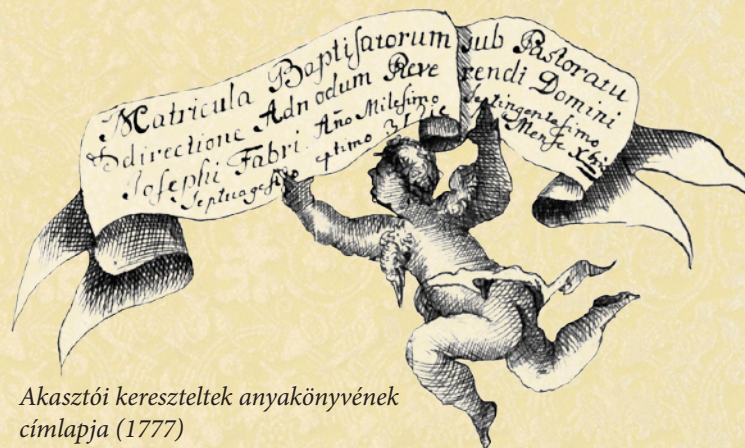 Matricula Baptisatorum sub Pastoratu
& directione Admodum Reve rendi Domini
Josephi Fabri. Año Milesimo Septingentesimo
Septuagesimo eptimo 31 Die Mense Xbri
Akasztói kereszteltek anyakönyvének
címlapja (1777)